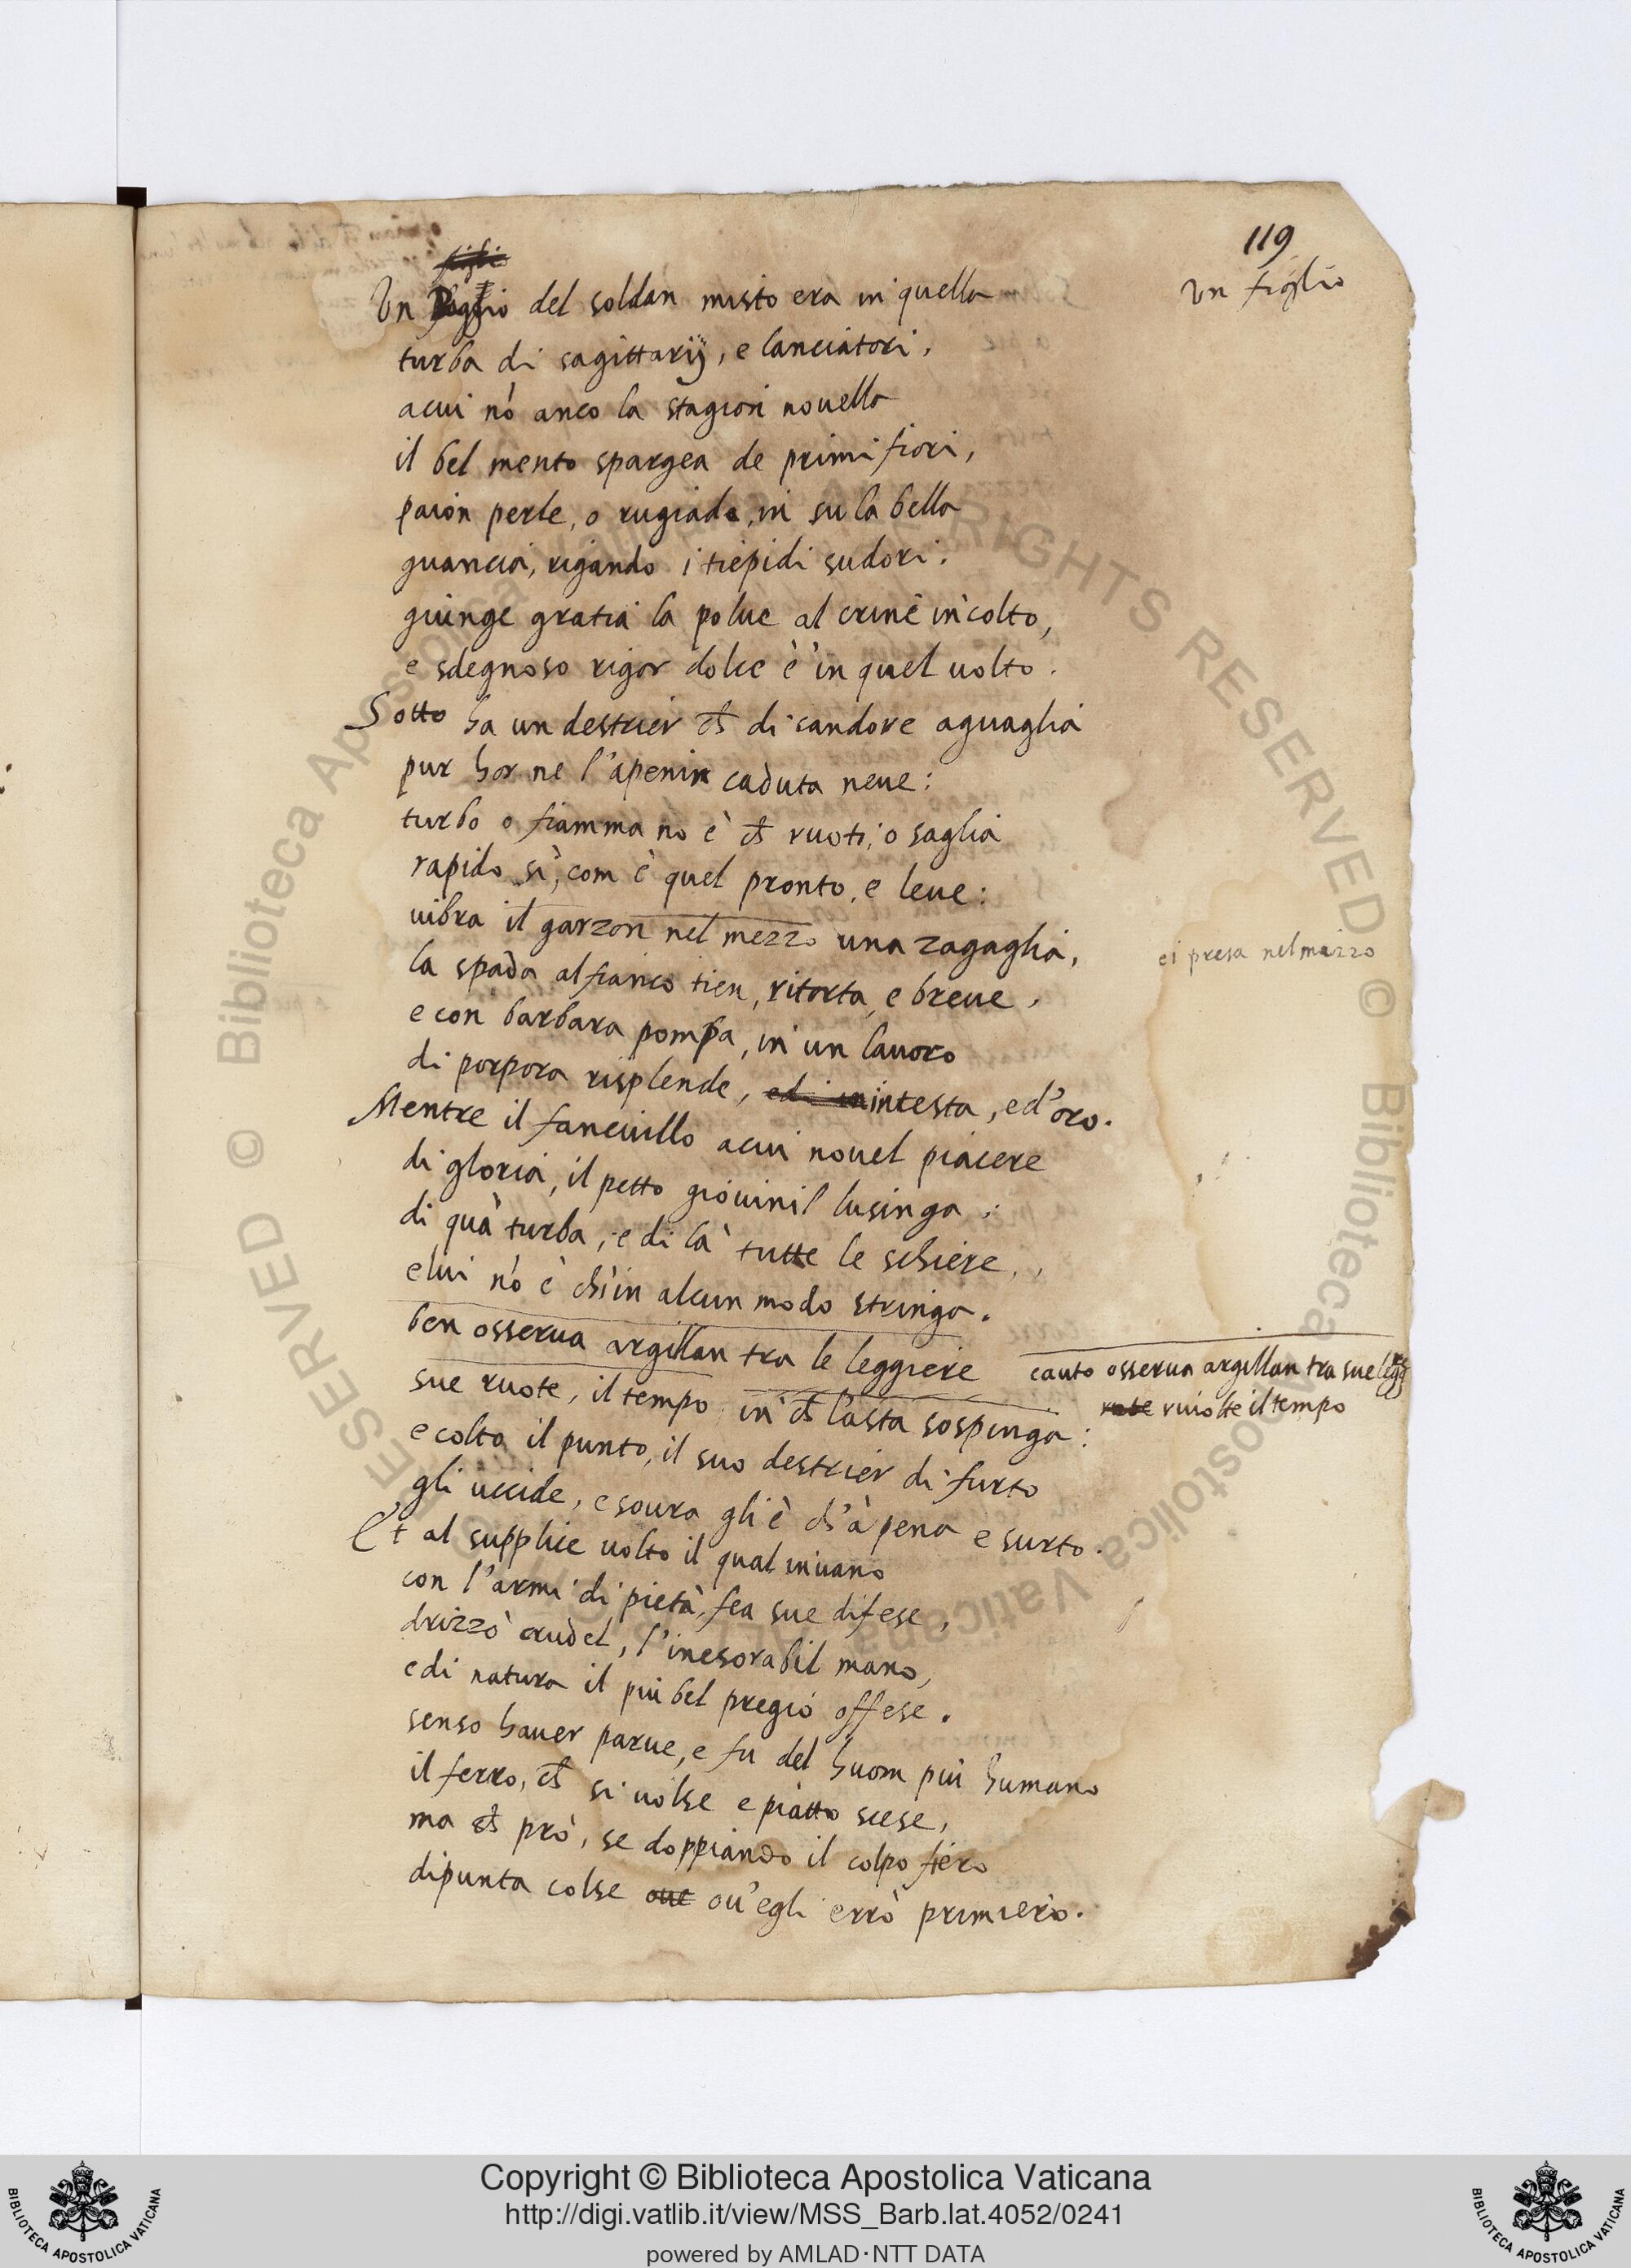 119
figlio
Vn figlio del soldan misto era in quella
Vn figlio
turba di sagittarij, e lanciatori,
a cui nō anco la stagion nouella
il bel mento spargea de primi fiori,
paion perle, o rugiade, in su la bella
guancia, rigando i tiepidi sudori.
giunge gratia la polue al crine incolto,
e sdegnoso rigor dolce è in quel uolto.
Sotto ha un destrier ch̄ di candore aguaglia
pur hor ne l'apenin caduta neue:
turbo o fiamma no è ch̄ ruoti, o saglia
rapido sì, com è quel pronto, e leue:
uibra il garzon nel mezzo una zagaglia,
ei presa nel mezzo
la spada al fianco tien, ritorta, e breue,
e con barbara pompa, in un lauoro
di porpora risplende, ed in intesta, ed'oro.
Mentre il fanciullo a cui nouel piacere
di gloria, il petto giouinil lusinga,
di quà turba, e di là tutte le schiere,
e lui nō è ch'in alcun modo stringa.
ben osserua argillan tra le leggiere
cauto osserua argillan tra sue legg
sue ruote, il tempo in ch̄ l'asta sospinga:
rote riuolte il tempo
e colto il punto, il suo destrier di furto
gli uccide, e soura gli è ch'à pena e surto.
Et al supplice uolto il qual inuano
con l'armi di pietà, fea sue difese,
drizzò crudel, l'inesorabil mano,
e di natura il più bel pregio offese.
senso hauer parue, e fu del huom più humano
il ferro, ch̄ si uolse e piatto scese,
ma ch̄ prò, se doppiando il colpo fiero
di punta colse oue ou'egli errò primiero.
Copyright © Biblioteca Apostolica Vaticana
http://digi.vatlib.it/view/MSS_Barb.lat.4052/0241
powered by AMLAD·NTT DATA
BIBLIOTECA APOSTOLICA VATICANA
BIBLIOTECA APOSTOLICA VATICANA